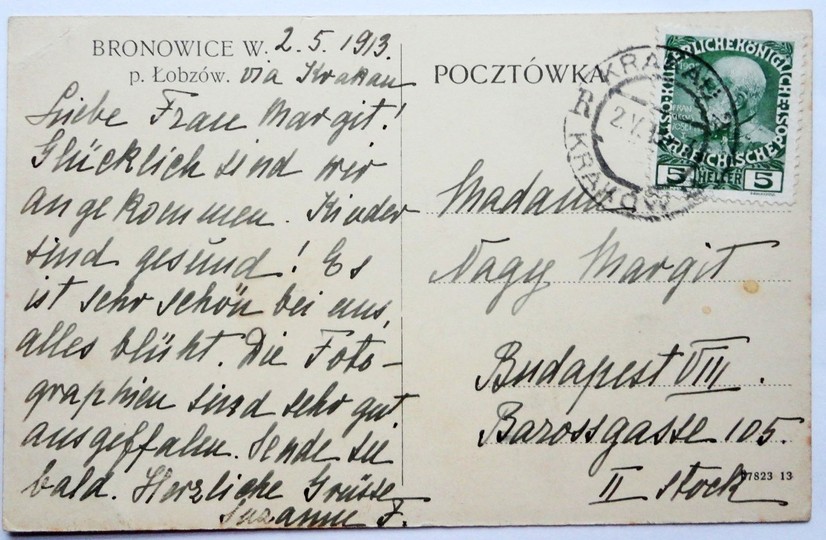 BRONOWICE W. 2.5.1913.
p. Łobzów. via Krakau
Liebe Frau Margit!
Glücklich sind wir
angekommen. Kinder
sind gesund! Es
ist sehr schön bei uns,
alles blüht. Die Foto-
graphien sind sehr gut
ausgeffalen. Sende sie
bald. Herzliche Grüsse
Suzanne F.
POCZTÓWKA
KRAKAU
2.V.1
KRAKÓW
KAISERLICHE KÖNIGLICHE POST
ÖSTERREICHISCHE
5 HELLER 5
Madame
Nagy Margit
Budapest VIII.
Barossgasse 105.
II Stock
13